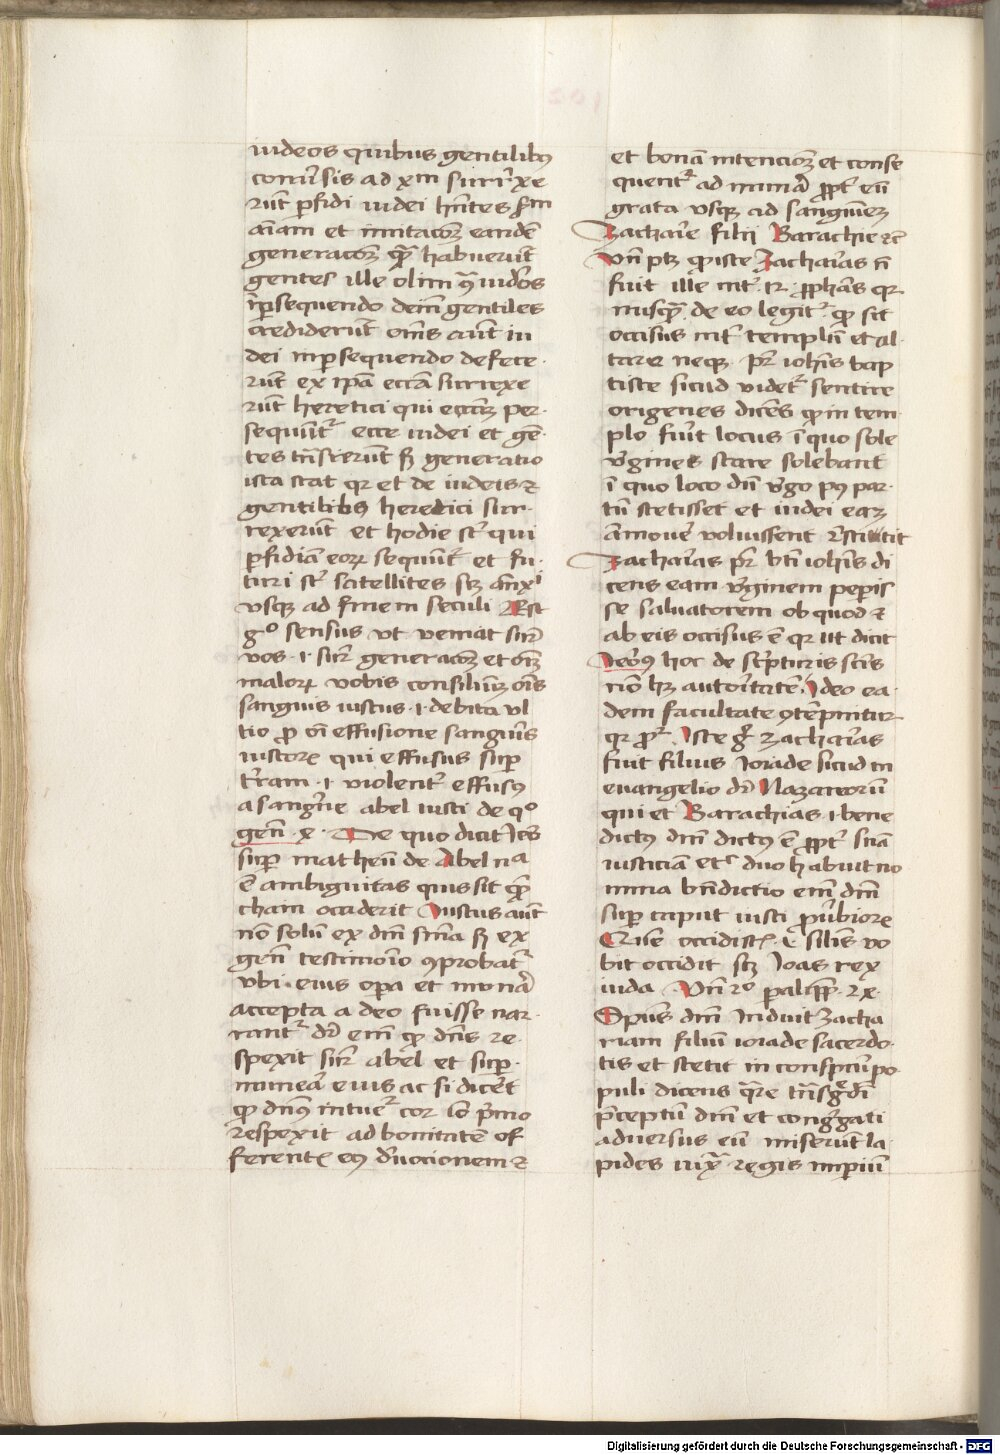 iudeos quibus gentilibꝯ
conũsis ad xm̄ surrexe
rūt ꝑfidi iudei hn̄tes
aīam et imitacōꝫ eandē
generacōꝫ quā habuerūt
gentes ille olim iudeos
ꝑsequendo dein gentiles
crediderūt om̄s aūt iu
dei in ꝑsequendo defece
rūt ex ipā ecc̄ia surrexe
rūt heretici qui ecc̄iaꝫ per
sequūtᷣ ecce iudei et gē
tes trāsierūt sꝫ generatio
ista stat qꝛ et de iudeis ⁊
gentilibꝫ heretici sur
rexerūt et hodie st̄ qui
ꝑfidiā eoꝝ sequūtᷣ et fu
turi st̄ satellites scꝫ anxⁱ
vsqꝫ ad finem seculi Est
gᵒ sensus vt veniat sup̄
vos .i. sup̄ generacōꝫ et om̄ꝫ
maloꝝ vobis consiliuꝫ oīs
sanguis iustus .i. debita vl
tio ꝓ om̄i effusione sanguīs
iustoꝝ qui effusus suꝑ
terram .i. violentᷣ effusꝯ
a sanguīe abel iusti de qᵒ
gen̄ .x. De quo dicit Jeōs
suꝑ matheū de Abel nᵃ
ē ambiguitas quis sit quē
chain occiderit Iustus aūt
nō solū ex dn̄i sn̄ia sꝫ ex
gen̄ testimonio ꝯprobatᷣ
vbi eius oꝑa et munera
accepta a deo fuisse nar
rantᷣ dr̄ em̄ ꝙ dn̄s re
spexit sup̄ abel et suꝑ
munera eius ac si diceret
ꝙ dn̄s intuetᷣ cor Io p̄mo
respexit ad bonitatē of
ferentꝭ eꝯ deuocionem ⁊
et bonā intencioꝫ et conse
quentᷣ ad munera ꝓpt̄ eū
grata vsqꝫ ad sanguineꝫ
Zacharie filij Barachie ⁊c̄
Vn̄ ptꝫ ꝙ iste Zacharias nō
fuit ille int̄ .12. ꝓphetas qꝛ
nusquā de eo legitᷣ ꝙ sit
occisus int̄ templū et al
tare neqꝫ pr̄ iohīs bap
tiste sicud videtᷣ sentire
origenes dicēs ꝙ in tem
plo fuit locus ī quo sole
virgines stare solebant
ī quo loco dū virgo pꝯ par
tū stetisset et iudei eaꝫ
amouere voluissent restitit
Zacharias pr̄ bt̄i iohīs di
cens eam virginem peperis
se saluatorem ob quod ⁊
ab eis occisus ē qꝛ ut dicit
Jeroīꝯ hoc de scripturis sc̄is
nō hꝫ autoritatē Ideo ea
dem facultate ꝯtēpnitur
qꝛ ꝓᷣ Iste gͦ Zacharias
fuit filius Iorade sicud in
euangelio dr̄ Nazareorū
qui et Barachias .i. bene
dictꝯ dn̄i dictꝯ ē ꝓpt̄ suā
iusticiā et duo habuit no
mina bn̄dictio em̄ dn̄i
suꝑ caput iusti ꝓuerbioꝝ
Quē occidistꝭ .i. silis vo
bis occidit scꝫ Ioas rex
iuda Vn̄ 2º ꝑalipp̄ .2x.
Spūs dn̄i induit Zacha
riam filiū iorade sacerdo
tis et stetit in conspectu po
puli dicens quare trāsgredī
preceptū dn̄i et congregati
aduersus eū miserūt la
pides iuxta regis imperiū
Digitalisierung gefördert durch die Deutsche Forschungsgemeinschaft - DFG